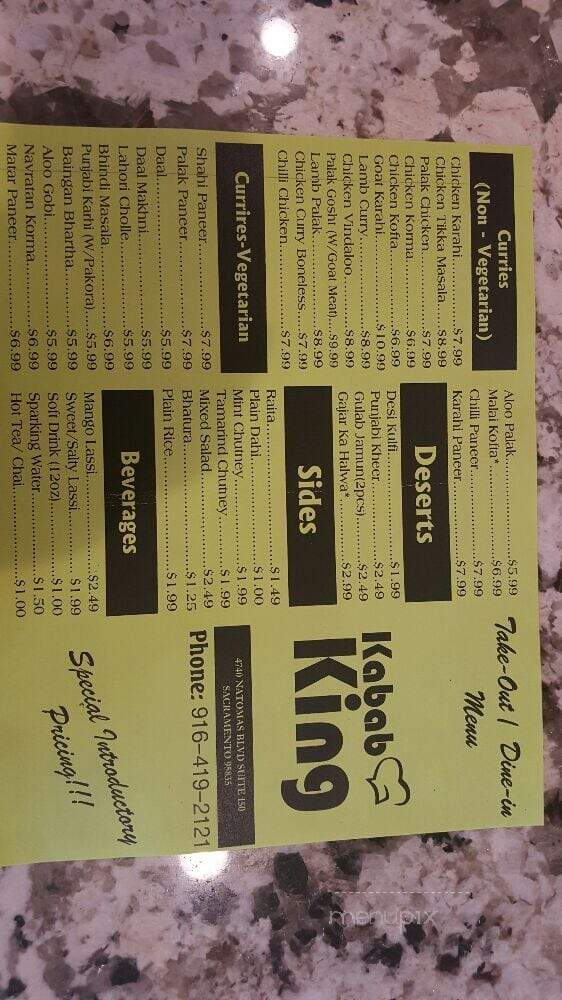 Curries
(Non - Vegetarian)
Chicken Karahi..................$7.99
Chicken Tikka Masala..........$8.99
Palak Chicken...................$7.99
Chicken Korma..................$6.99
Chicken Kofta...................$6.99
Goat Karahi.....................$10.99
Lamb Curry......................$8.99
Chicken Vindaloo...............$8.99
Palak Gosht (W/Goat Meat)....$9.99
Lamb Palak......................$8.99
Chicken Curry Boneless........$7.99
Chilli Chicken...................$7.99
Currires-Vegetarian
Shahi Paneer....................$7.99
Palak Paneer....................$7.99
Daal..............................$5.99
Daal Makhni.....................$5.99
Lahori Cholle....................$5.99
Bhindi Masala...................$6.99
Punjabi Karhi (W/Pakora).....$5.99
Baingan Bhartha................$5.99
Aloo Gobi........................$5.99
Navratan Korma.................$6.99
Matar Paneer....................$6.99
Aloo Palak.......................$5.99
Malai Kofta*.....................$6.99
Chilli Paneer.....................$7.99
Karahi Paneer...................$7.99
Deserts
Desi Kulfi........................$1.99
Punjabi Kheer...................$2.49
Gulab Jamun(2pcs)............$2.49
Gajar Ka Halwa*................$2.99
Sides
Raita.............................$1.49
Plain Dahi.......................$1.00
Mint Chutney....................$1.99
Tamarind Chutney..............$1.99
Mixed Salad.....................$2.49
Bhatura..........................$1.25
Plain Rice........................$1.99
Beverages
Mango Lassi.....................$2.49
Sweet/Salty Lassi...............$1.99
Soft Drink (12oz)...............$1.00
Sparking Water..................$1.50
Hot Tea/ Chai...................$1.00
Take-Out / Dine-in
Menu
Kabab
King
4740 NATOMAS BLVD SUITE 150
SACRAMENTO 95835
Phone: 916-419-2121
Special Introductory
Pricing!!!
menupix